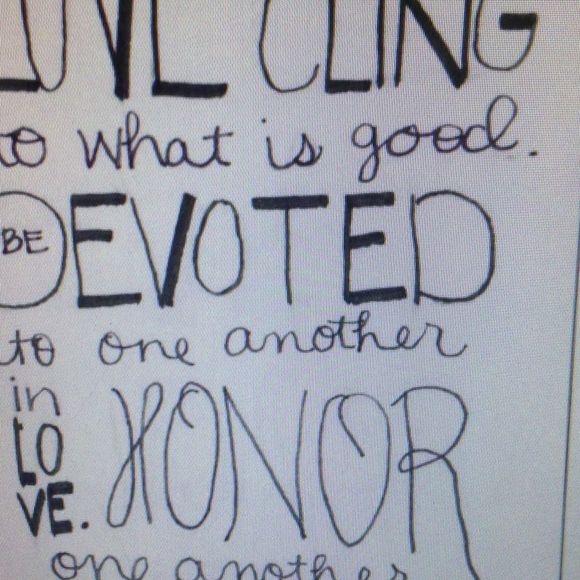 LOVE CLING
to what is good.
BE DEVOTED
to one another
in
LO
VE.
HONOR
one another